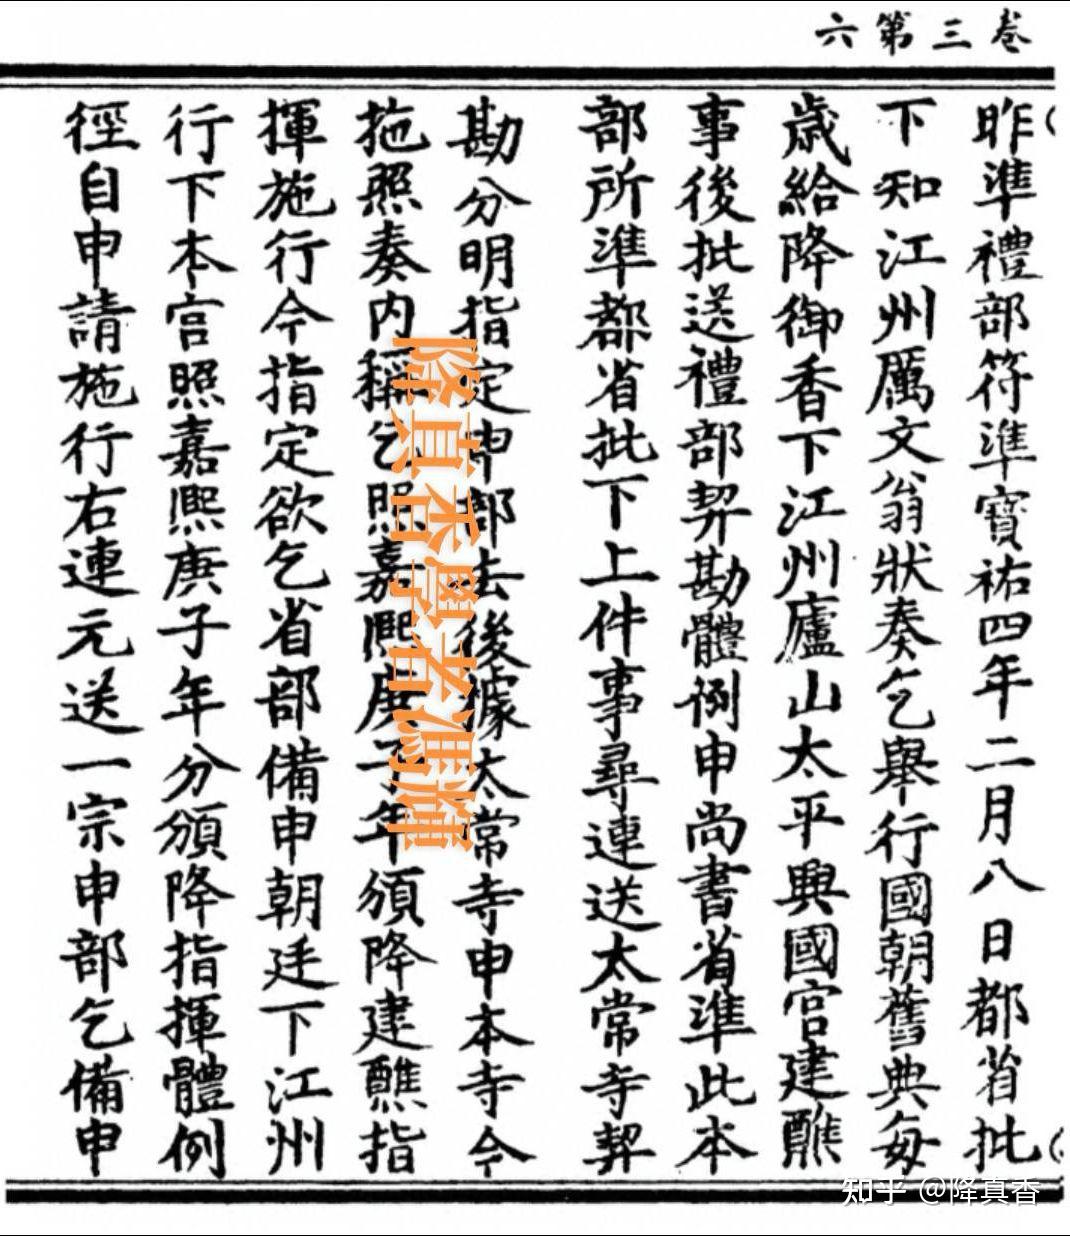 卷三第六
昨準禮部符準寶祐四年二月八日都省批
下知江州厲文翁狀奏乞舉行國朝舊典每
歲給降御香下江州廬山太平興國宮建醮
事後批送禮部契勘體例申尚書省準此本
部所準都省批下上件事尋連送太常寺契
勘分明指定申部去後據太常寺申本寺今
拖照奏内稱乞照嘉熙庚子年頒降建醮指
揮施行今指定欲乞省部備申朝廷下江州
行下本宮照嘉熙庚子年分頒降指揮體例
徑自申請施行右連元送一宗申部乞備申
降真香學者馮輝
知乎 @降真香